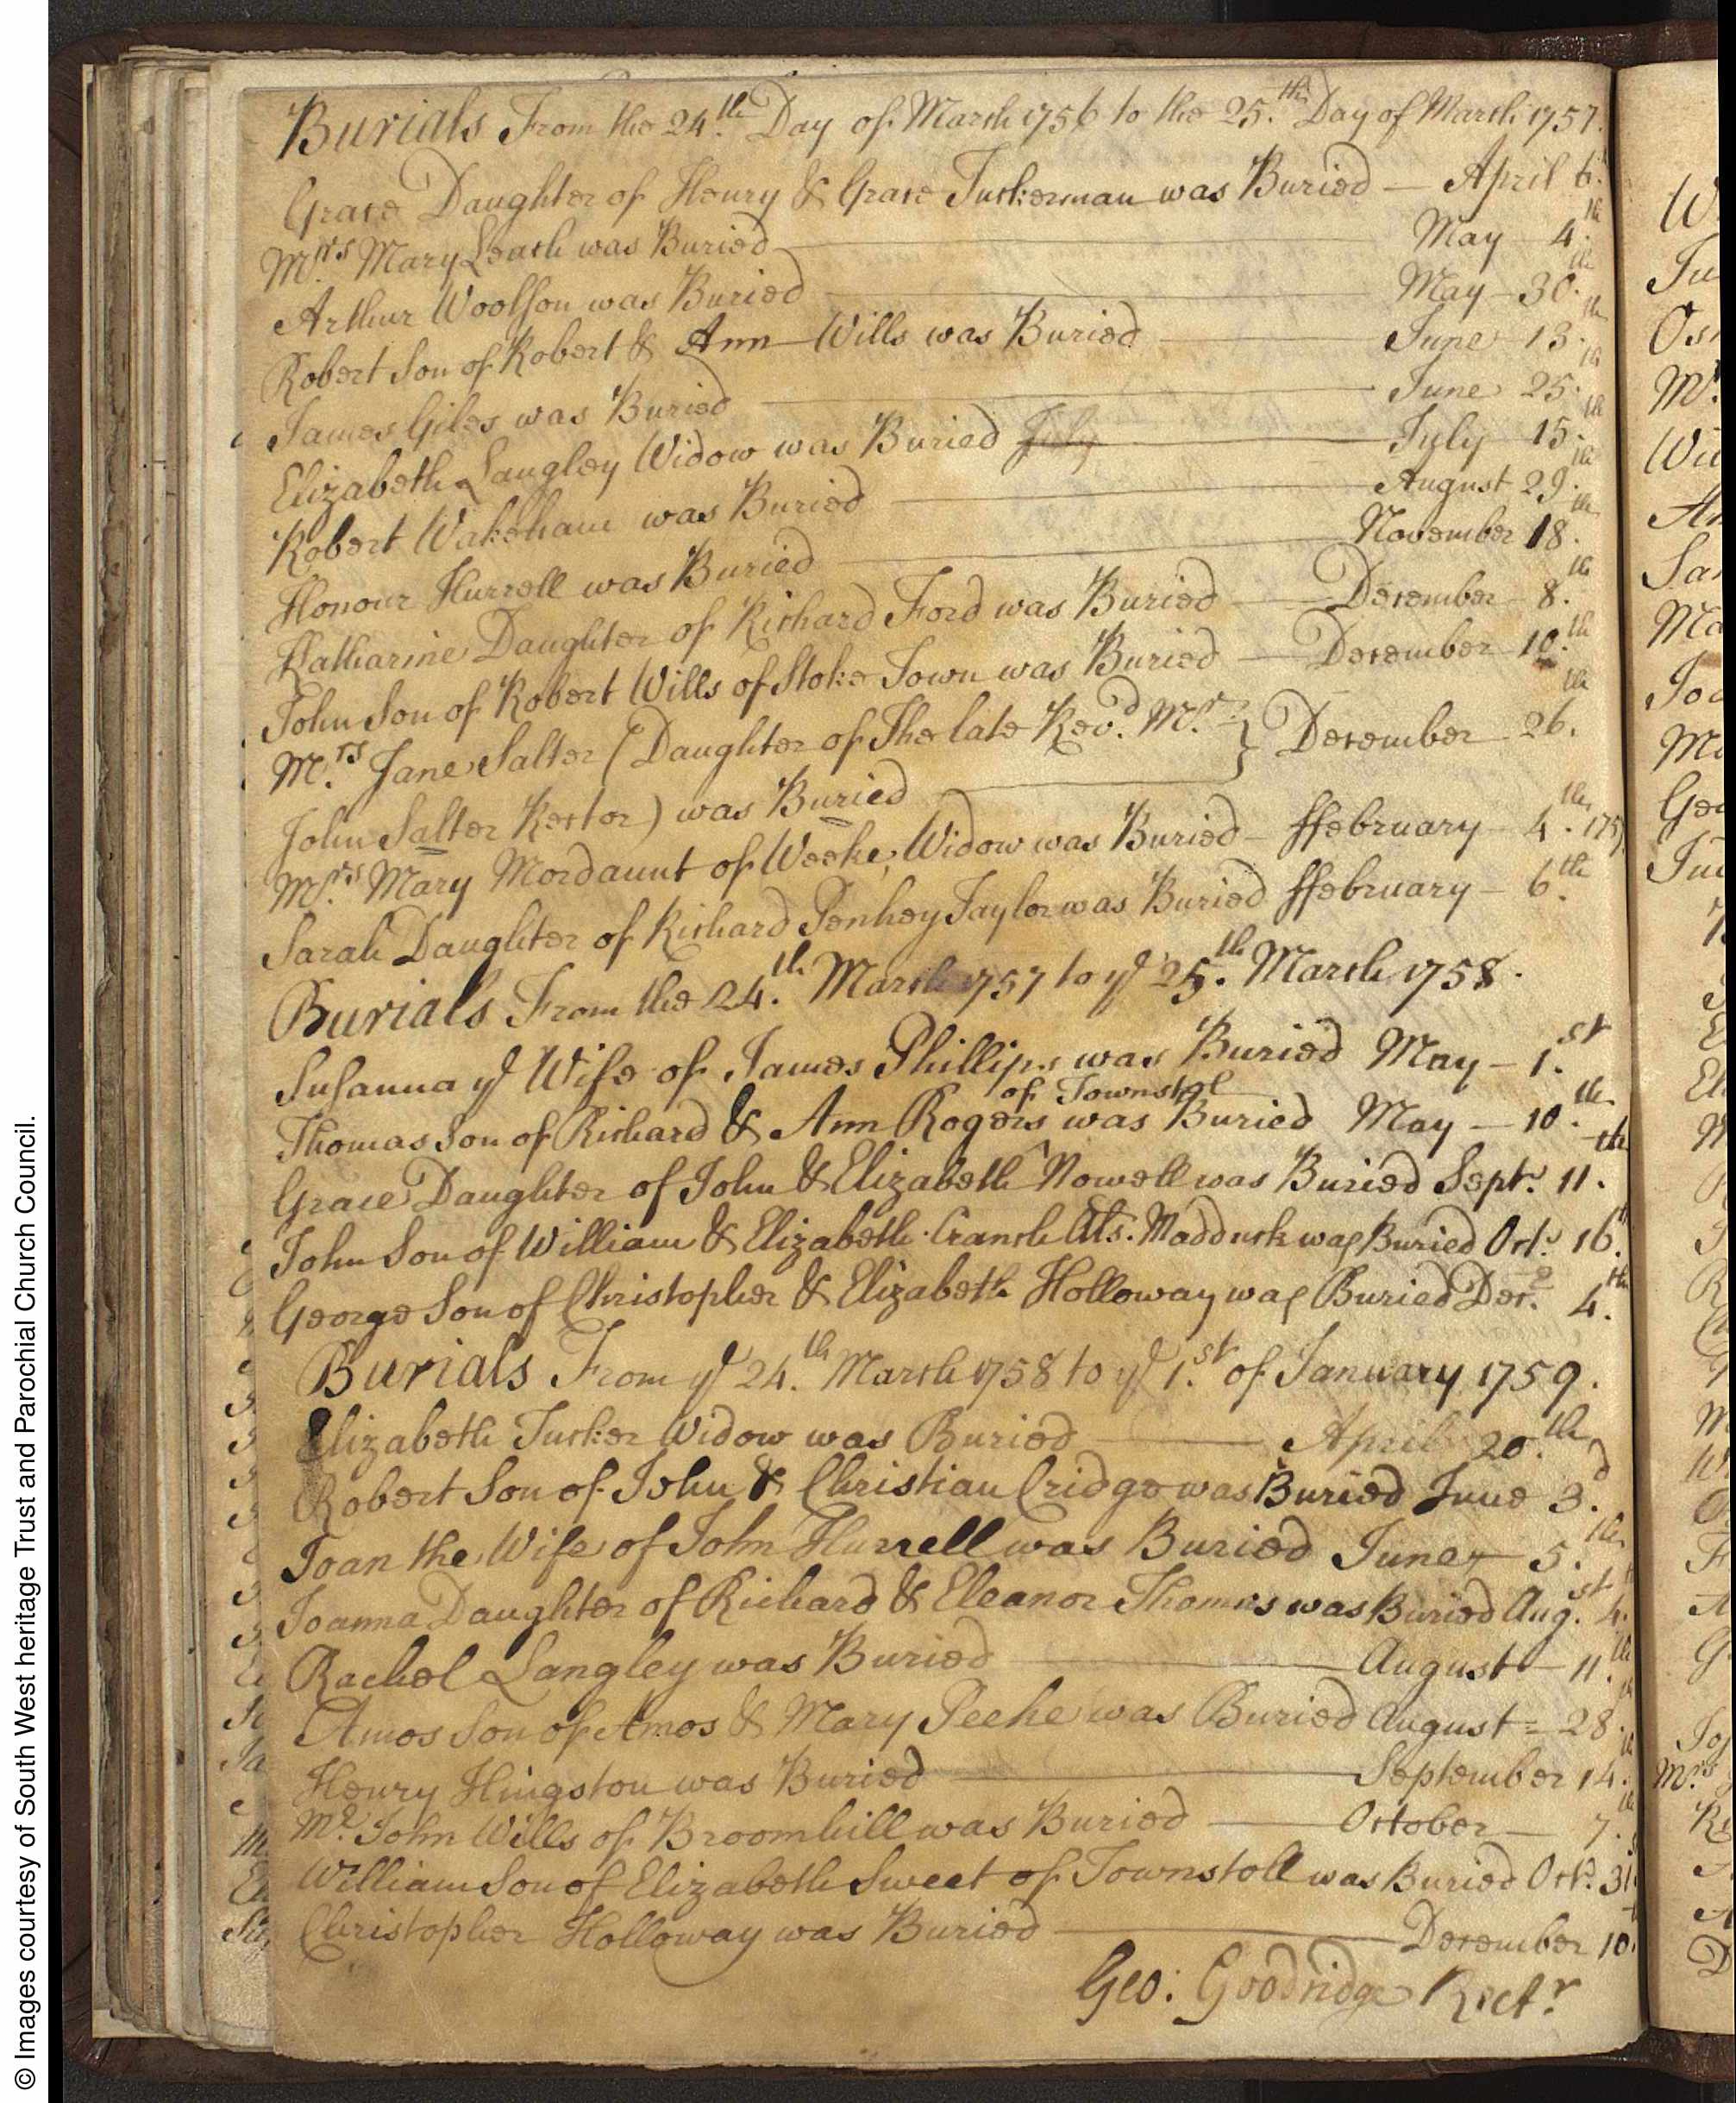 Burials From the 24.th Day of March 1756 to the 25.th Day of March 1757.
Grace Daughter of Henry & Grace Tuckerman was Buried — April 6.
Mrs Mary Leach was Buried — May 4.th
Arthur Woolson was Buried — May 30.th
Robert Son of Robert & Ann Wills was Buried — June 13.th
James Giles was Buried — June 25.th
Elizabeth Langley Widow was Buried July — July 15.th
Robert Wakeham was Buried — August 29.th
Honour Hurrell was Buried — November 18.th
Katharine Daughter of Richard Ford was Buried — December 8.th
John Son of Robert Wills of Stoke Town was Buried — December 10.th
M.rs Jane Salter (Daughter of The late Rev.d M.r } December 26.th
John Salter Rector) was Buried —
M.rs Mary Mordaunt of Weeke, Widow was Buried — ffebruary 4.th 1757
Sarah Daughter of Richard Penhey Taylor was Buried ffebruary — 6.th
Burials From the 24.th March 1757 to ye 25.th March 1758.
Susanna ye Wife of James Phillips was Buried May — 1.st
Thomas Son of Richard & Ann Rogers was Buried May — 10.th
of Townstal
Grace Daughter of John & Elizabeth ^ Nowell was Buried Sept.r 11.th
John Son of William & Elizabeth Cranch Als. Madduck was Buried Oct.r 16.th
George Son of Christopher & Elizabeth Holloway was Buried Dec.r 4.th
Burials From ye 24.th March 1758 to ye 1.st of January 1759.
Elizabeth Tucker Widow was Buried — April 20.th
Robert Son of John & Christian Cridge was Buried June 3.d
Joan the Wife of John Hurrell was Buried June — 5.th
Joanna Daughter of Richard & Eleanor Thomas was Buried Aug.st 4.
Rachel Langley was Buried — August — 11.th
Amos Son of Amos & Mary Peeke was Buried August = 28.th
Henry Hingston was Buried — September 14.th
Mr. John Wills of Broomhill was Buried — October — 7.th
William Son of Elizabeth Sweet of Townstoll was Buried Oct.r 31
Christopher Holloway was Buried — December 10.
Geo: Goodridge Rect.r
© Images courtesy of South West heritage Trust and Parochial Church Council.